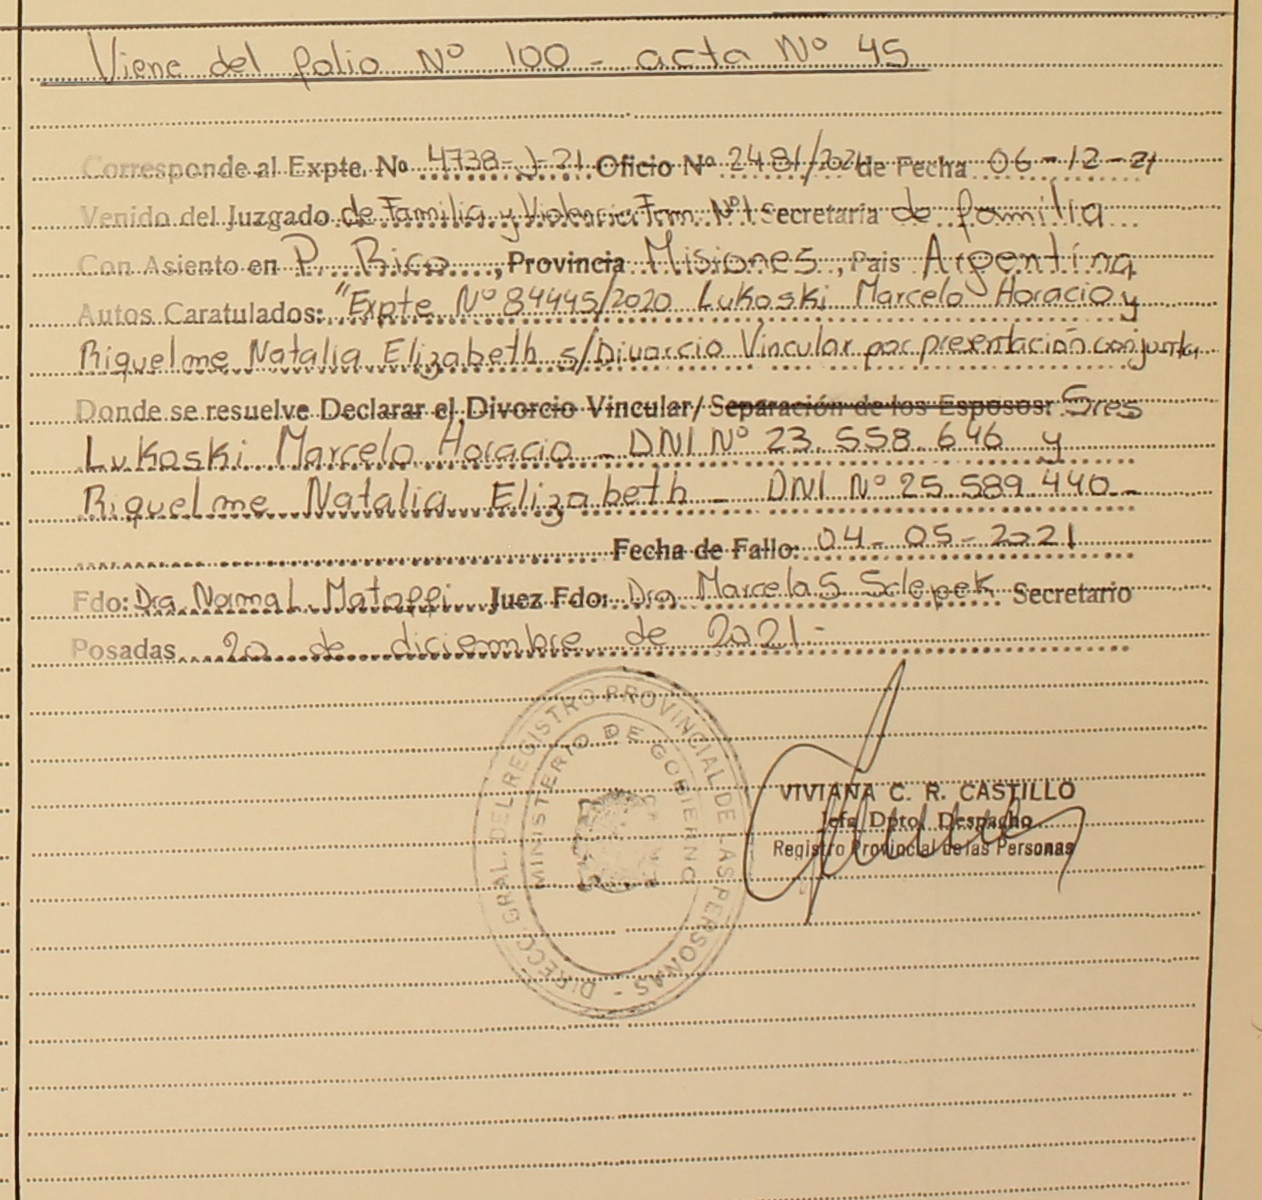 Viene del folio Nº 100 - acta Nº 45
Corresponde al Expte. Nº 4738-J-21 Oficio Nº 2481/2021 de Fecha 06-12-21
Venido del Juzgado de Familia y Violencia Fam. Nº1 Secretaría de familia
Con Asiento en P. Rico, Provincia Misiones, Pais Argentina
Autos Caratulados: "Expte Nº 84445/2020 Lukoski Marcelo Horacio y
Riquelme Natalia Elizabeth s/Divorcio Vincular por presentación conjunta
Donde se resuelve Declarar el Divorcio Vincular/ Separación de los Esposos: Sres
Lukoski Marcelo Horacio - DNI Nº 23.558.646 y
Riquelme Natalia Elizabeth - DNI Nº 25.589.440 -
Fecha de Fallo: 04-05-2021
Fdo: Dra L. Juez Fdo: Dra Marcela S Sclepek Secretario
Posadas 20 de diciembre de 2021-
DIRECC. GRAL. DEL REGISTRO PROVINCIAL DE LAS PERSONAS -
MINISTERIO DE GOBIERNO
VIVIANA C. R. CASTILLO
Jefa Dpto. Despacho
Registro Provincial de las Personas